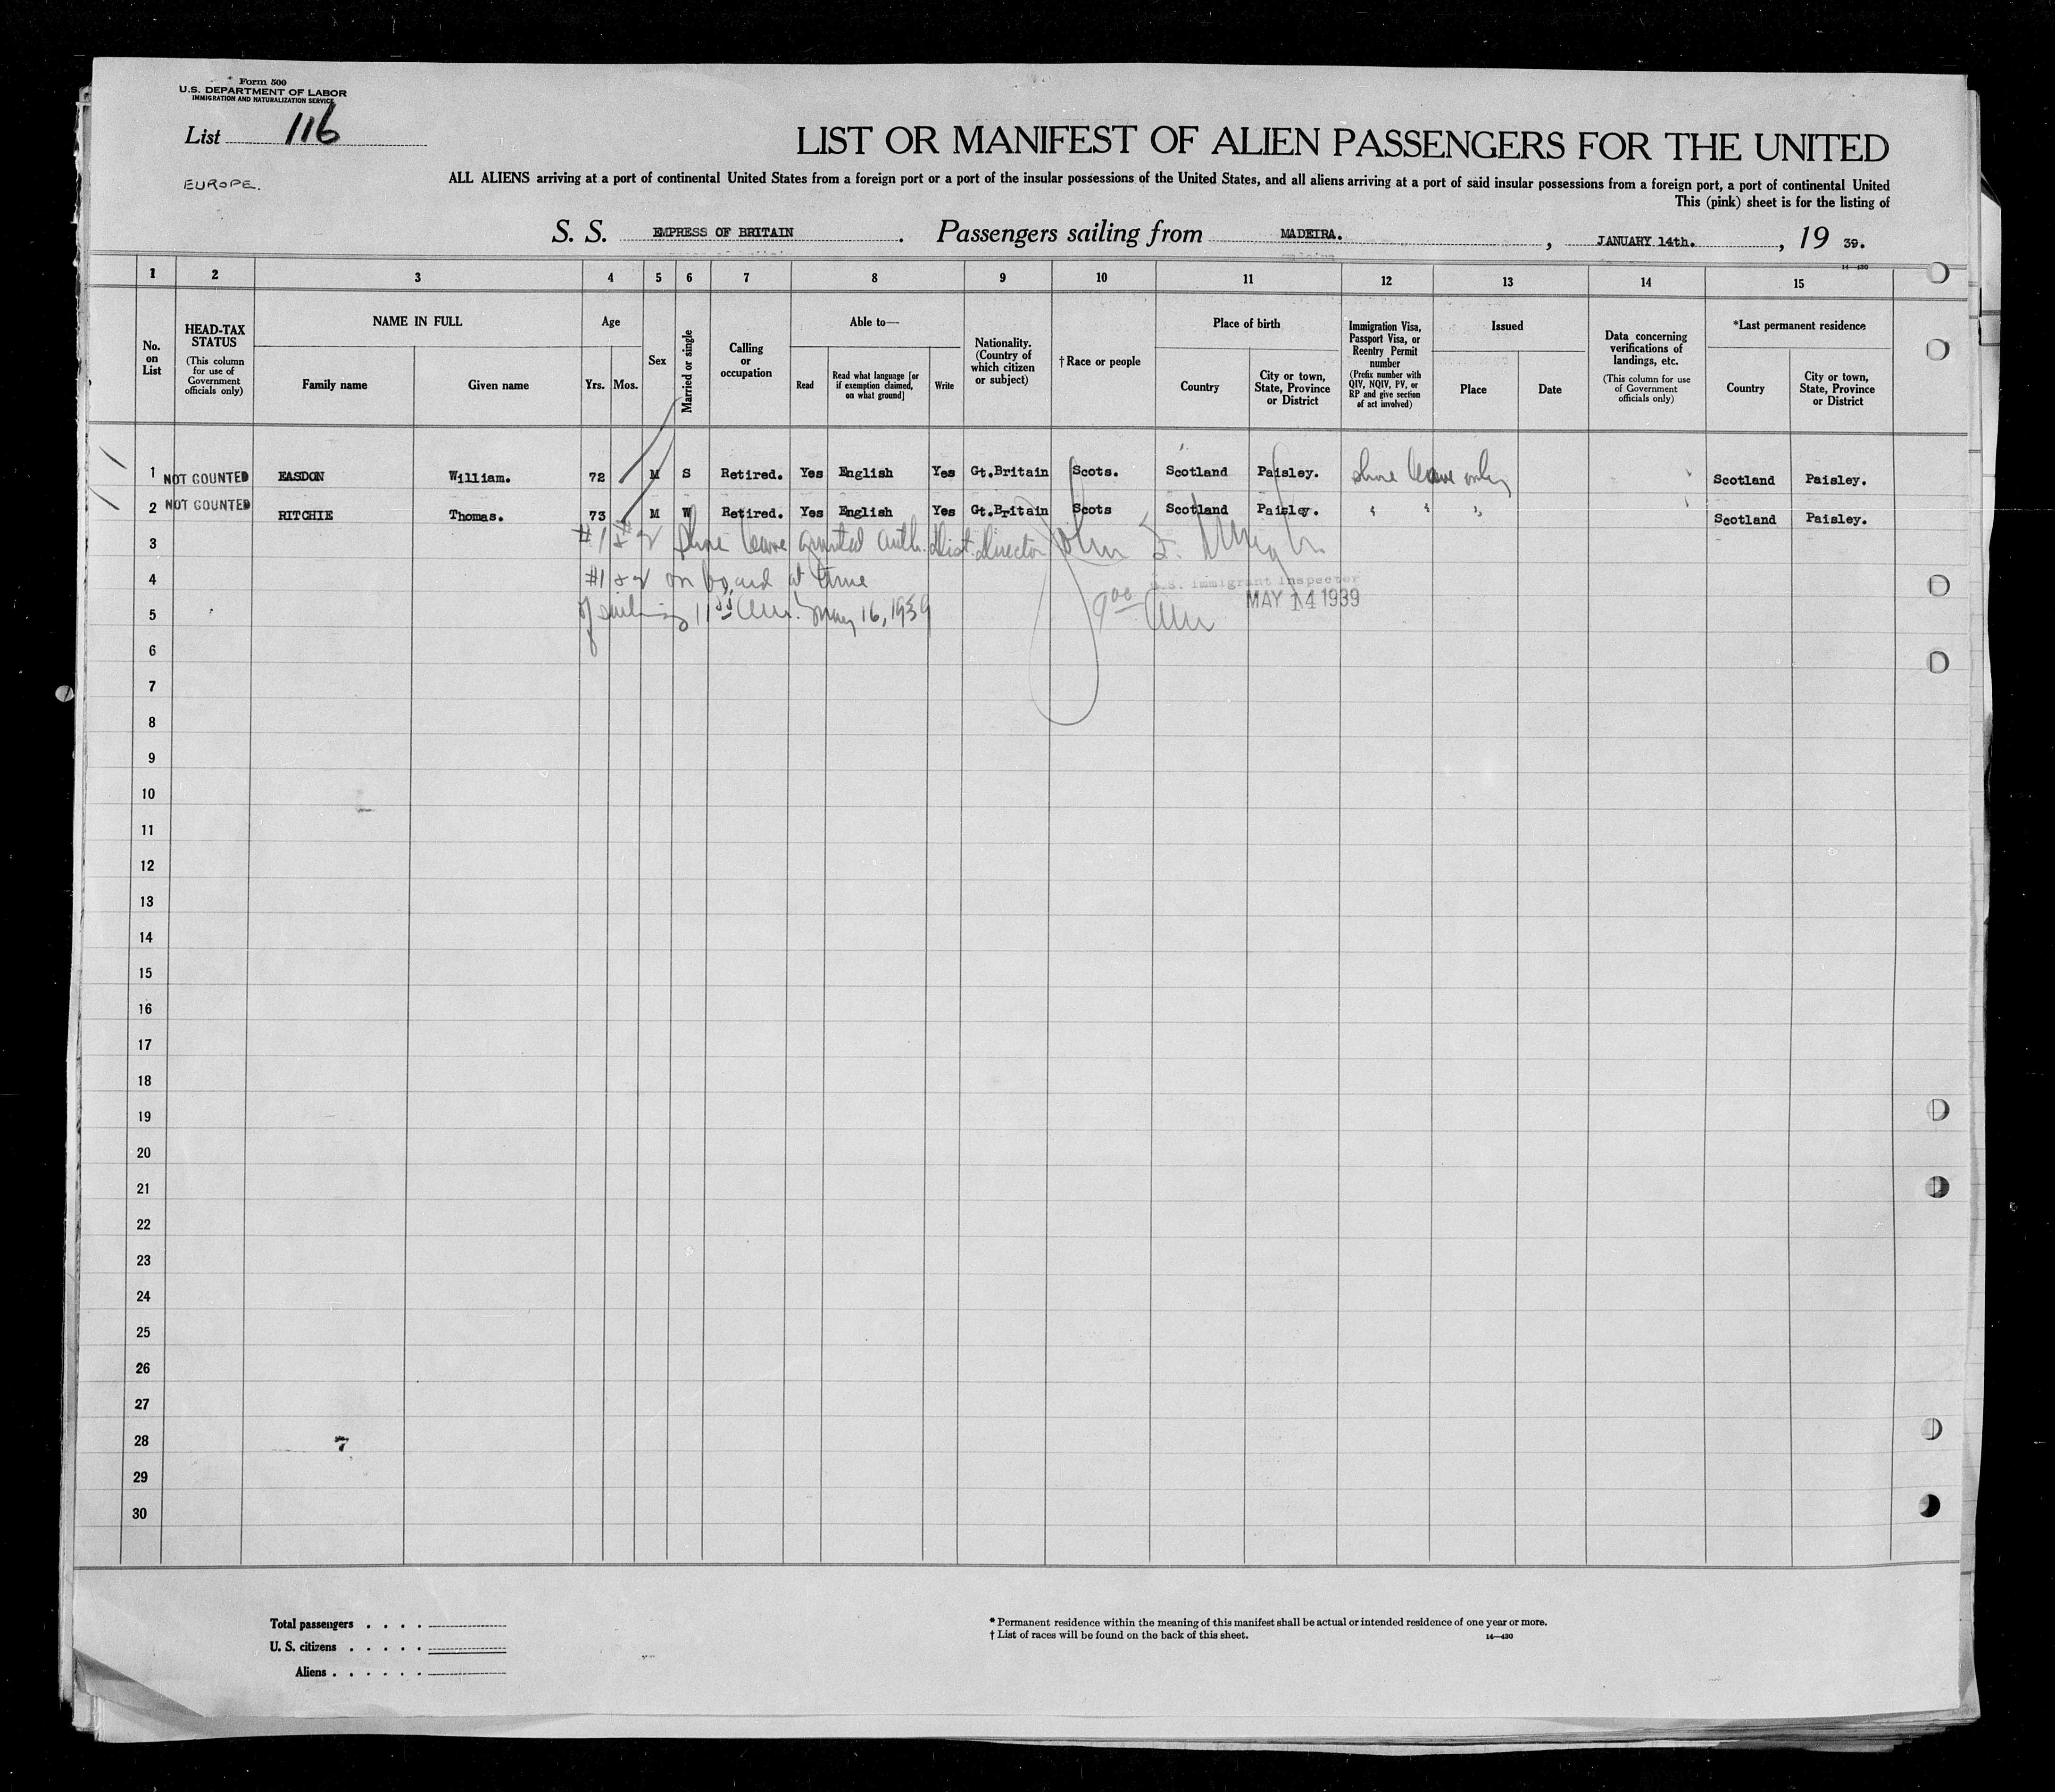 Form 500
U.S. DEPARTMENT OF LABOR
IMMIGRATION AND NATURALIZATION SERVICE
List 116
EUROPE.
LIST OR MANIFEST OF ALIEN PASSENGERS FOR THE UNITED
ALL ALIENS arriving at a port of continental United States from a foreign port or a port of the insular possessions of the United States, and all aliens arriving at a port of said insular possessions from a foreign port, a port of continental United
This (pink) sheet is for the listing of
S. S. EMPRESS OF BRITAIN. Passengers sailing from MADEIRA. , JANUARY 14th. , 19 39.
14—430
1 2 3 4 5 6 7 8 9 10 11 12 13 14 15
No. on List
HEAD-TAX STATUS (This column for use of Government officials only)
NAME IN FULL
Family name Given name
Age
Yrs. Mos.
Sex
Married or single
Calling or occupation
Able to—
Read Read what language [or if exemption claimed, on what ground] Write
Nationality. (Country of which citizen or subject)
†Race or people
Place of birth
Country City or town, State, Province or District
Immigration Visa, Passport Visa, or Reentry Permit number (Prefix number with QIV, NQIV, PV, or RP and give section of act involved)
Issued
Place Date
Data concerning verifications of landings, etc. (This column for use of Government officials only)
*Last permanent residence
Country City or town, State, Province or District
1 NOT COUNTED EASDON William. 72 M S Retired. Yes English Yes Gt.Britain Scots. Scotland Paisley. Shore leave only Scotland Paisley.
2 NOT COUNTED RITCHIE Thomas. 73 M W Retired. Yes English Yes Gt.Britain Scots Scotland Paisley. " " " Scotland Paisley.
3 #1 & 2 Shore leave granted auth. Dist. Director John
4 #1 & 2 on board at time
U.S. Immigrant Inspector
5 of sailing May 16, 1939 9 00 AM MAY 14 1939
6
7
8
9
10
11
12
13
14
15
16
17
18
19
20
21
22
23
24
25
26
27
28
29
30
Total passengers . . . .
U. S. citizens . . . . .
Aliens . . . . . .
* Permanent residence within the meaning of this manifest shall be actual or intended residence of one year or more.
† List of races will be found on the back of this sheet. 14—430